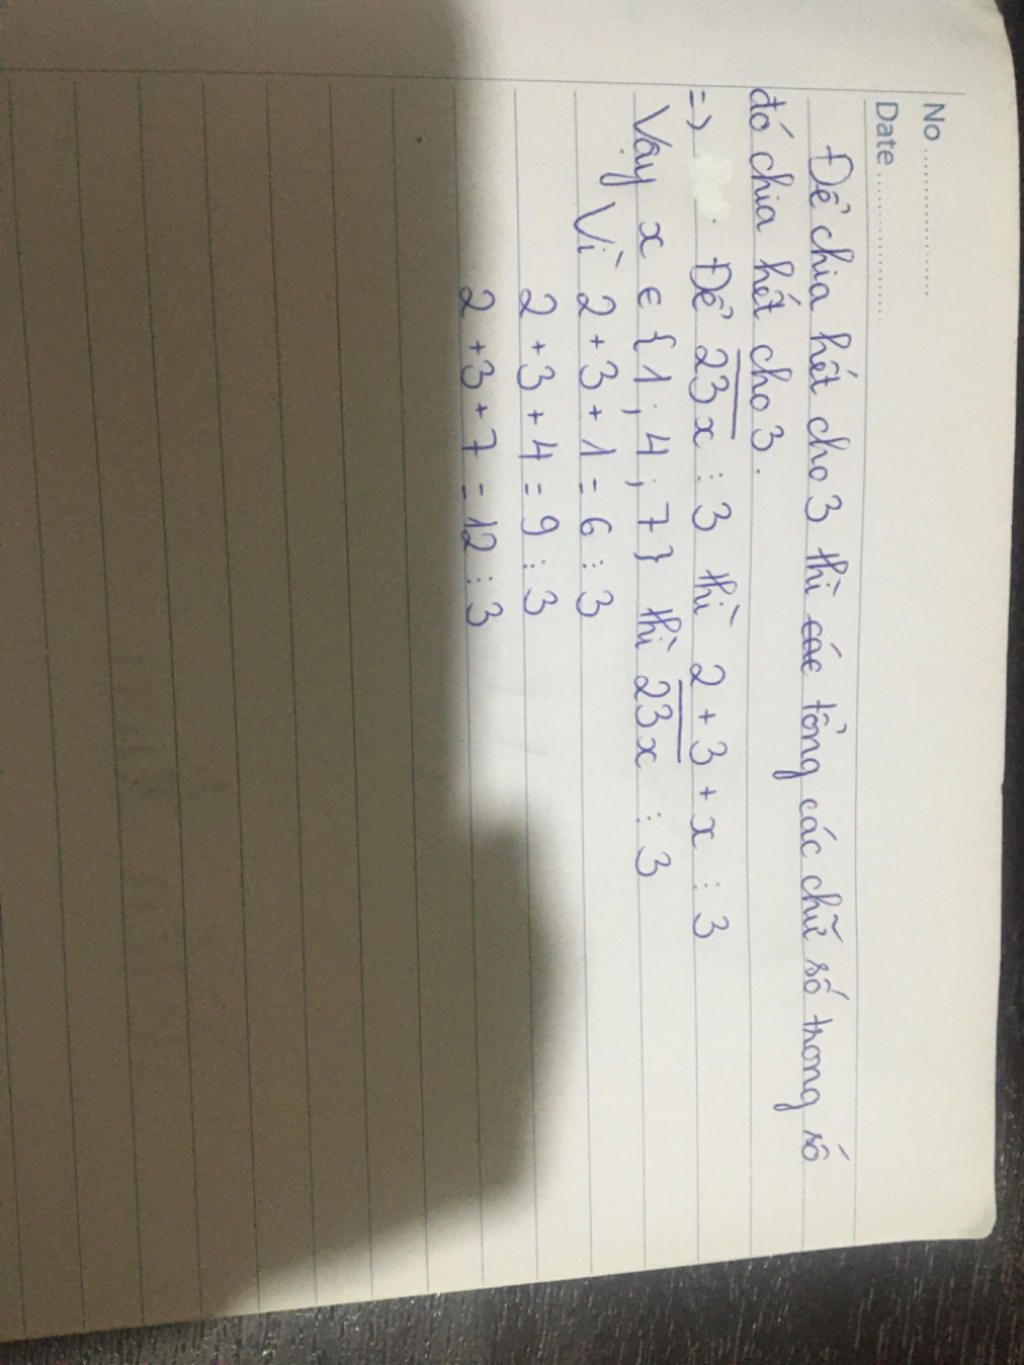 No ..................
Date ..................
Để chia hết cho 3 thì các tổng các chữ số trong số
đó chia hết cho 3.
=> Để 23x ⋮ 3 thì 2 + 3 + x ⋮ 3
Vậy x ∈ {1 ; 4 ; 7} thì 23x ⋮ 3
Vì 2 + 3 + 1 = 6 ⋮ 3
2 + 3 + 4 = 9 ⋮ 3
2 + 3 + 7 = 12 ⋮ 3